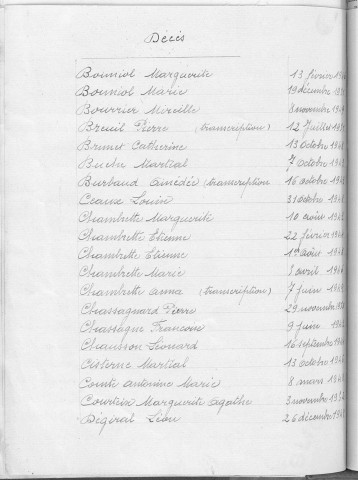 Décès
Bouniol Marguerite 13 février
Bouniol Marie 19 décembre
Bourrier Mireille 8 novembre
Breuil Pierre (transcription) 12 Juillet
Brunet Catherine 13 octobre
Martial 7 octobre
Burbaud Amédée (transcription 16 octobre
Ceaux Louis 31 octobre
Chambrette Marguerite 10 août
Chambrette Etienne 22 février
Chambrette Etienne 1er août
Chambrette Marie 3 avril
Chambrette Anna (transcription) 7 juin
Chassagnard Pierre 29 novembre
Chassagne Françoise 9 juin
Chausson Léonard 16 septembre
Cisterne Martial 13 octobre
Comte Antonine Marie 8 mars
Courteix Marguerite Agathe 3 novembre
Dégiral Léon 26 décembre